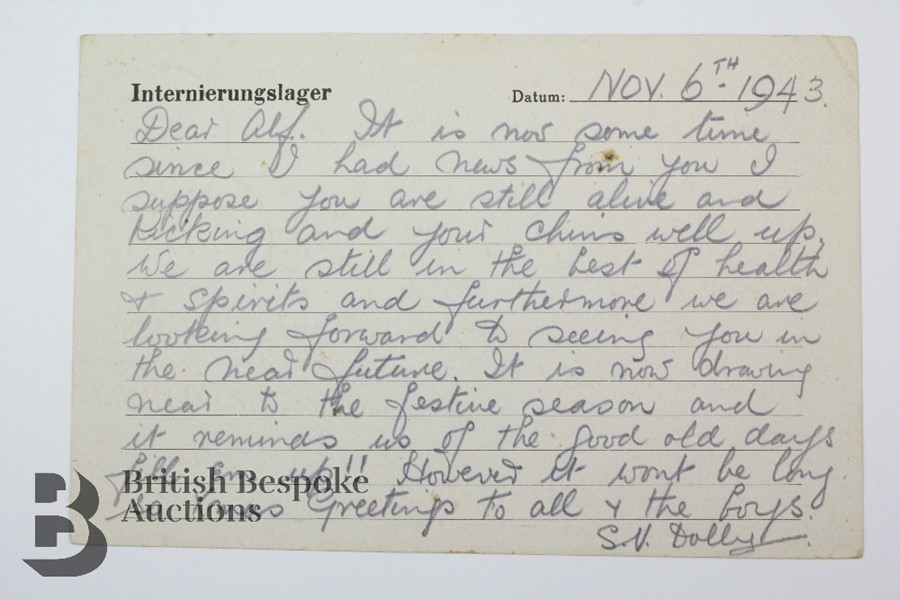 Internierungslager
Datum: NOV. 6TH 1943.
Dear Alf. It is now some time
since I had news from you I
suppose you are still alive and
kicking and your chins well up.
We are still in the best of health
& spirits and furthermore we are
looking forward to seeing you in
the near future. It is now drawing
near to the festive season and
it reminds us of the good old days
up!! However it wont be long
Greetings to all & the boys.
S.V. Dolly
British Bespoke
Auctions